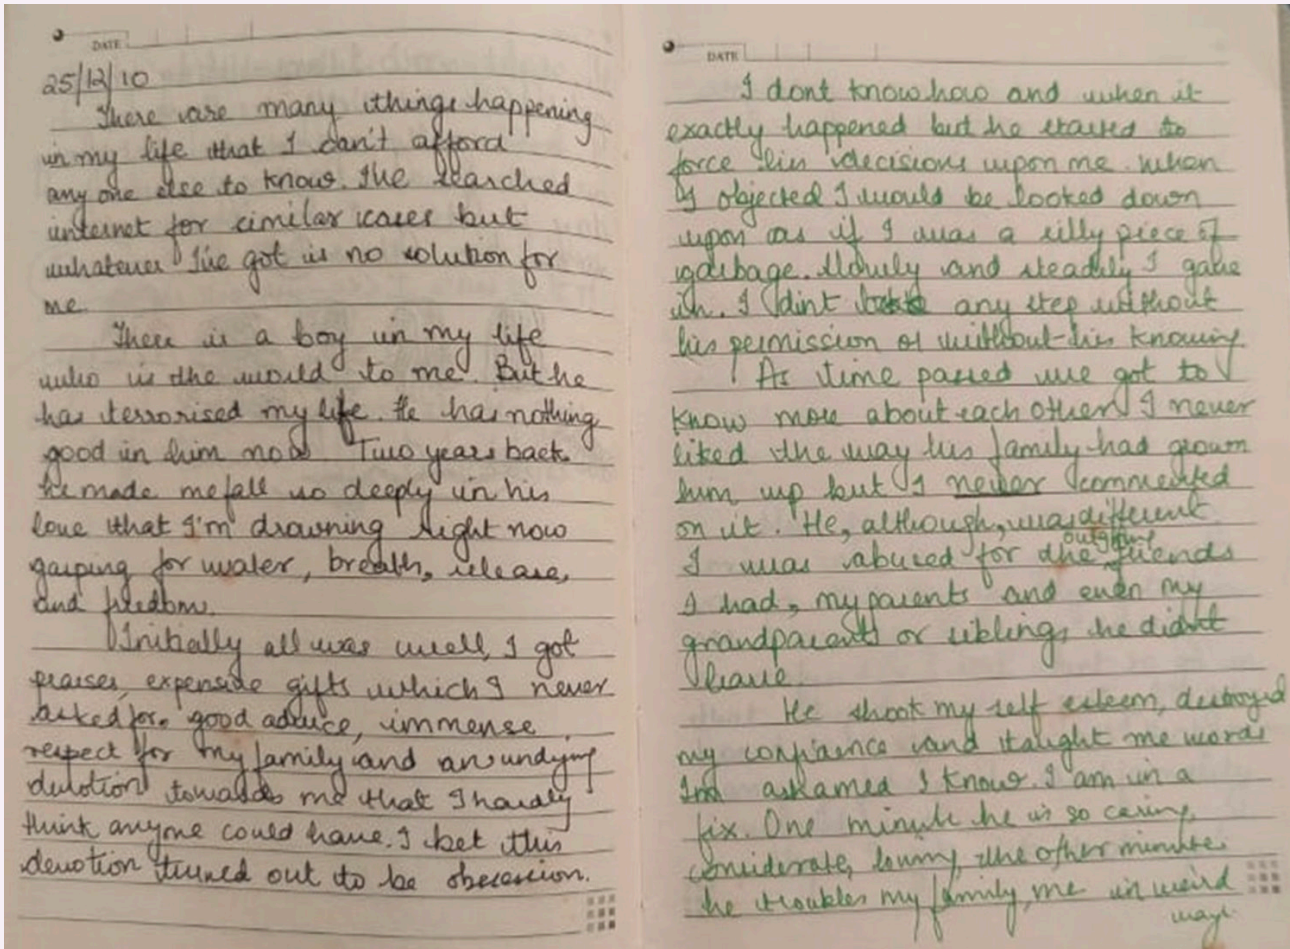 DATE
25/12/10
There are many things happening
in my life that I can't afford
any one else to know. I've searched
internet for similar cases but
whatever I've got is no solution for
me.
There is a boy in my life
who is the world to me. But he
has terrorised my life. He has nothing
good in him now. Two years back
he made me fall so deeply in his
love that I'm drowning right now
gasping for water, breath, release,
and freedom.
Initially all was well, I got
praises, expensive gifts which I never
asked for, good advice, immense
respect for my family and an undying
devotion towards me that I hardly
think anyone could have. I bet this
devotion turned out to be obsession.
DATE
I dont know how and when it
exactly happened but he started to
force his decisions upon me. When
I objected I would be looked down
upon as if I was a silly piece of
garbage. Slowly and steadily I gave
in. I dint take any step without
his permission or without his knowing
As time passed we got to
know more about each other. I never
liked the way his family had grown
him up but I never commented
on it. He, although, was different.
outgoing
I was abused for the friends
I had, my parents and even my
grandparents or siblings he didn't
leave.
He shook my self esteem, destroyed
my confience and taught me words
I'm ashamed I know. I am in a
fix. One minute he is so caring,
considerate, loving, the other minute
he troubles my family, me in weird
ways.